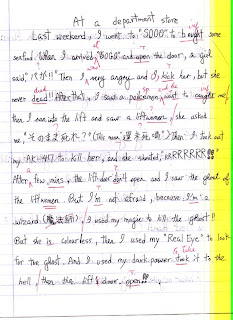 At a department store
Last weekend, I went to "SOGO" to bought some
seafood. When I arrived "SOGO" and open the door, a girl
said, "バカ!!" Then I very angry and I kick her, but she
never dead!! After that, I saw a policeman want to caught me,
then I ran into the lift and saw a liftwomen, she asked
me, "そのまま死れ?" (This mean ) Then I took out
my "AK-47" to kill her, and she shouted, "RRRRRR!!"
After few mins, the lift door didn't open and I saw the ghost of
the liftwomen. But I'm not afraid, because I'm a
wizard (魔法師), I used my magic to kill the ghost!!
But she is colourless, then I used my "Real Eye" to look
for the ghost. And I used my dark power took it to the
hell, then the lift door open!!!